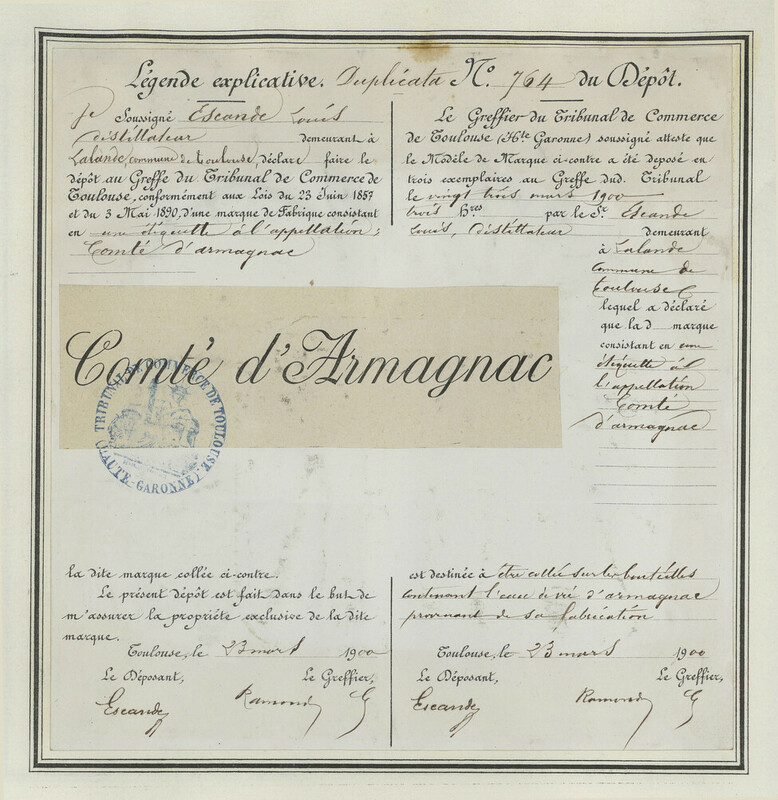 Légende explicative. Duplicata N° 764 du Dépôt.
je Soussigné Escande Louis
distillateur demeurant à
Lalande, commune de toulouse, déclare faire le
dépôt au Greffe du Tribunal de Commerce de
Toulouse, conformément aux Lois du 23 Juin 1857
et du 3 Mai 1890, d'une marque de Fabrique consistant
en une étiquette à l'appellation:
Comté d'armagnac
Le Greffier du Tribunal de Commerce
de Toulouse (Hte Garonne) soussigné atteste que
le Modèle de Marque ci-contre a été déposé en
trois exemplaires au Greffe dud. Tribunal
le vingt trois mars 1900
trois Hres par le Sr. Escande
Louis, distillateur demeurant
à Lalande
commune de
toulouse
lequel a déclaré
que la d marque
consistant en une
étiquette à
l'appellation
Comté
d'armagnac
Comté d'Armagnac
TRIBUNAL DE COMMERCE DE TOULOUSE
(HAUTE-GARONNE)
la dite marque collée ci-contre.
Le présent dépôt est fait dans le but de
m'assurer la propriété exclusive de la dite
marque.
Toulouse, le 23 mars 1900
Le Déposant, Le Greffier,
Escande Ramond
est destinée à être collée sur les bouteilles
contenant l'eau de vie d'armagnac
provenant de sa fabrication
Toulouse, le 23 mars 1900
Le Déposant, Le Greffier,
Escande Ramond